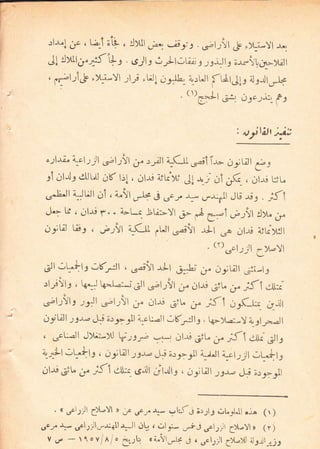 بعد الاستيلاء على الأراضى . وتوقف بعض الملاك ، فجأة أيضا ، عن إمداد
الفلاحين بالأسمدة والبذور ونفقات الحرث والرى . ولجأ كثير من الملاك إلى
مجلس الدولة وإلى المحاكم العادية يطلبون إلغاء قرار الاستيلاء على أراضيهم ،
وهم يتذرعون بشتى الحجج (١) .
تنفيذ القانون :
وضع القانون حداً أقصى للملكية الفرد من الأراضى الزراعية مقداره
مائتا فدان ، يمكن أن تزيد إلى ثلاثمائة فدان ، إذا كان للمالك ولدان أو
أكثر . وقد قال المهندس سيد مرعى فى مجلس الأمة ، أن الغالبية العظمى
من ملاك الأرض أصبح لهم حق الاحتفاظ بمساحة ٣٠٠ فدان ، مما جعل
الثلاثمائة فدان هى الحد الأقصى العام لملكية الأرض ، وفقا لقانون
الاصلاح الزراعى (٢) .
واستثنى القانون من تطبيق الحد الأقصى ، الشركات والجمعيات التى
تمتلك أكثر من مائتى فدان من الأراضى التى تستصلحها لبيعها ، والأفراد
الذين يمتلكون أكثر من مائتى فدان من الأراضى البور والأراضى
الصحراوية لاستصلاحها . والشركات الصناعية الموجودة قبل صدور القانون
والتى تملك أكثر من مائتى فدان بسبب ضرورتها للاستغلال الصناعى ،
والجمعيات الزراعية العلمية الموجودة قبل صدور القانون ، والجمعيات الخيرية
الموجودة قبل صدور القانون ، والدائن الذى يمتلك أكثر من مائتى فدان
(١) هذه المعلومات واردة فى كتابة سيد مرعى عن « الاصلاح الزراعى » .
(٢) « الاصلاح الزراعى فى خمس سنوات » بيان السيد المهندس الزراعى سيد مرعى
وزير الدولة للاصلاح الزراعى ، فى مجلس الأمة ، بتاريخ ١٩٥٧/٨/٥ - ص ٧